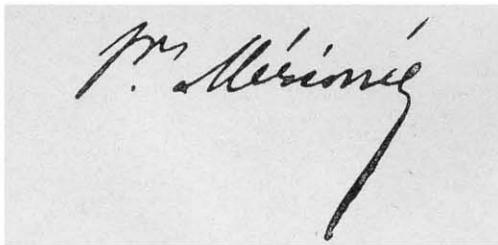 Pr. Mérimée